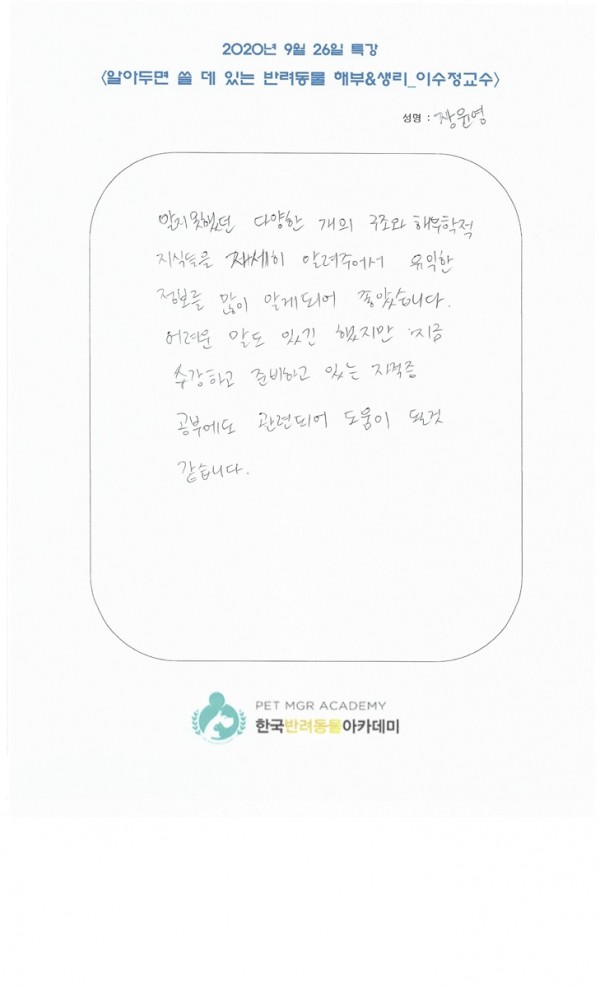 2020년 9월 26일 특강
<알아두면 쓸 데 있는 반려동물 해부&생리_이수정교수>
성명 : 장윤영
알지못했던 다양한 개의 구조와 해부학적
지식들을 자세히 알려주어서 유익한
정보를 많이 알게되어 좋았습니다.
어려운 말도 있긴 했지만 지금
수강하고 준비하고 있는 자격증
공부에도 관련되어 도움이 될것
같습니다.
PET MGR ACADEMY
한국반려동물아카데미